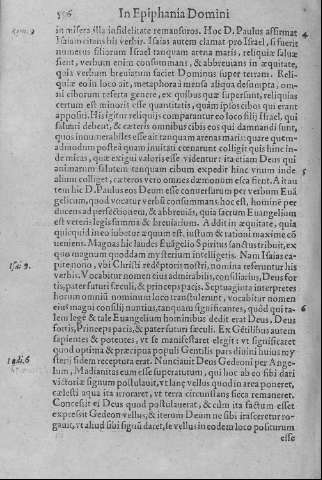 596 In Epiphania Domini
Rom. 9 in misera illa infidelitate remansuros. Hoc D. Paulus affirmat
Isaiam citans his verbis. Isaias autem clamat pro Israel, si fuerit
numerus filiorum Israel tanquam arena maris, reliquiæ saluæ
fient, verbum enim consummans, & abbreuians in æquitate,
quia verbum breuiatum faciet Dominus super terram. Reli-
quiæ eo in loco sit, metaphora à mensa aliqua desumpta, om-
nis ciborum referta genere, ex quibus quæ superfunt, reliquias
certum est minoris esse quantitatis, quàm ipsos cibos qui erant
appositi. His igitur reliquijs comparantur eo loco filij Israel, qui
saluari debent, & cæteris omnibus cibis eos qui damnandi sunt,
quos innumerabiles esse ait tanquam arena maris: quare quem-
admodum posteà quam inuitati cœnarunt colligit quis hinc in-
de micas, quæ exigui valoris esse videntur: ita etiam Deus qui
animarum salutem tanquam cibum expedit hinc vnum inde
alium colliget, cæteros verò omnes dæmonum esca fient. Ait au
tem hic D. Paulus eos Deum esse conuersurum per verbum Euã
gelicum, quod vocat verbũ consummans hoc est, hominẽ per
ducens ad perfectionem, & abbreuiãs, quia sacrum Euangelium
est veteris legis summa & breuiarium. Addit in æquitate, quia
quicquid in eo iubetur æquum est. iustum & rationi maximè cõ
ueniens. Magnas hic laudes Euãgelio Spiritus sanctus tribuit, ex
quo magnum quoddam mysterium intelligetis. Nam Isaias ca-
Isai. 9. pite nono, vbi Christi redẽptoris nostri, nomina referuntur his
verbis. Vocabitur nomen eius admirabilis, consiliarius, Deus for
tis, pater futuri sæculi, & princeps pacis. Septuaginta interpretes
horum omniũ nominum loco transtulerunt, vocabitur nomen
eius magni consilij nuntius, tanquam significantes, quòd qui ta-
lem legẽ & tale Euangelium hominibus dedit erat Deus, Deus
fortis, Princeps pacis, & pater futuri sæculi. Ex Gẽtilibus autem
sapientes & potentes, vt se manifestaret elegit: vt significaret
quod optima & præcipua populi Gentilis pars diuini huius my
Iudi. 6 sterij fidem receptura erat. Nunciauit Deus Gedeoni per Ange-
lum, Madianitas eum esse superaturum, qui hoc ab eo sibi dari
victoriæ signum postulauit, vt lanę vellus quod in area poneret,
cælesti aqua ita irroraret, vt terra circunstans sicca remaneret.
Concessit ei Deus quod postulauerat, & cùm ita factum esset
expressit Gedeon vellus, & iterum Deum ne sibi irasceretur ro-
gauit, vt aliud sibi signũ daret, se vellus in eodem loco positurum
esse
4
5
6